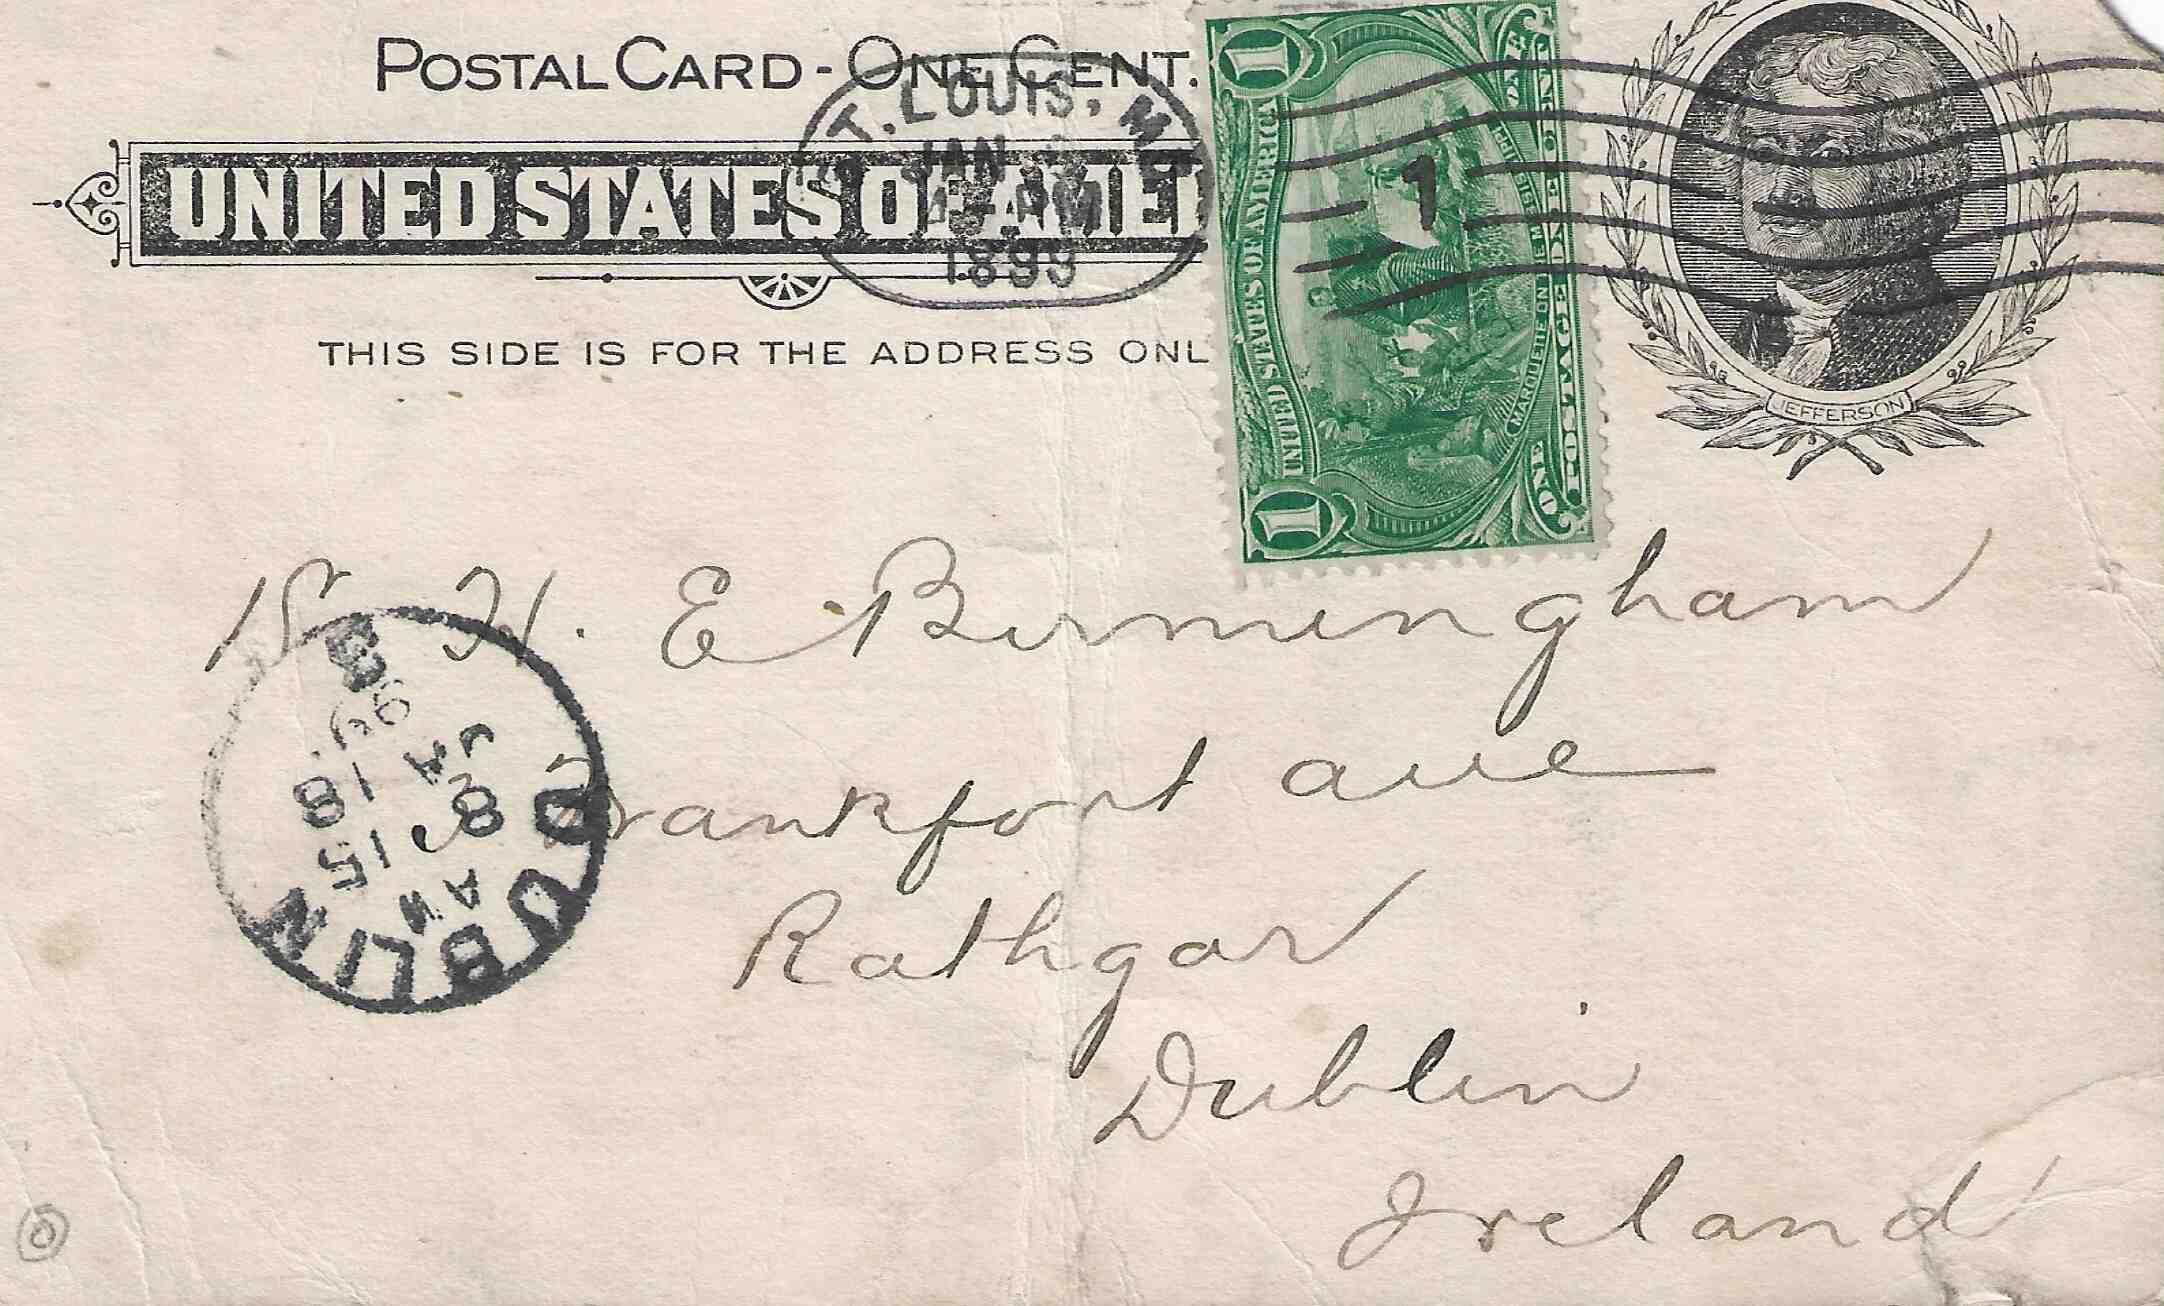 POSTAL CARD - ONE CENT.
UNITED STATES OF AMER
THIS SIDE IS FOR THE ADDRESS ONL
ST. LOUIS, MO
JAN
1899
1
1
ONE
UNITED STATES OF AMERICA
MARQUETTE ON THE MISSISSIPPI
POSTAGE ONE CENT
1
ONE
JEFFERSON
H. E Birmingham
Frankfort ave
Rathgar
Dublin
Ireland
DUBLIN
8 15 AM
JA 18
99